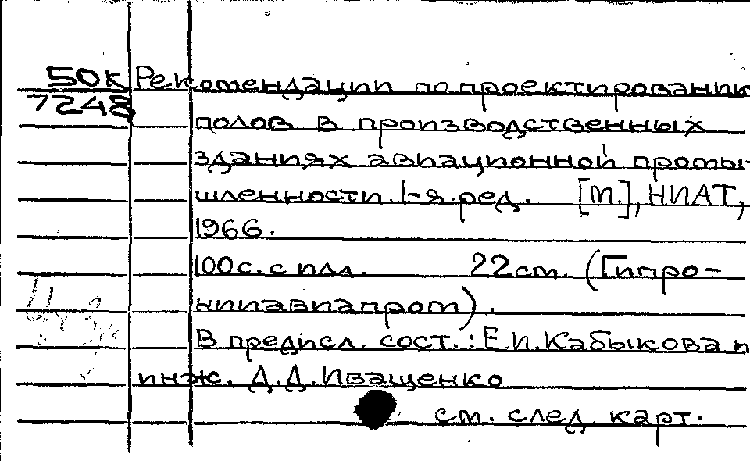 50к Рекомендации по проектированию
7248
полов в производственных
зданиях авиационной промы-
шленности. 1-я ред. [М.], НИАТ,
1966.
100с. с илл. 22см. (Гипро-
нииавиапром).
В предисл. сост.: Е.И. Кабыкова и
инж. Д.Д. Иващенко
см. след. карт.